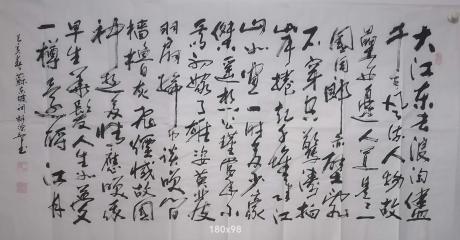 大江东去浪淘尽
千古风流人物故
垒西边人道是三
国周郎赤壁乱
石穿空惊涛拍
岸捲起千堆雪江
山如画一时多少豪
傑遥想公瑾当年小
乔初嫁了雄姿英发
羽扇纶巾谈笑间
樯橹灰飞烟灭故国
神遊多情应笑我
早生华髪人生如梦
一樽还酹江月
苏东坡词
180x98